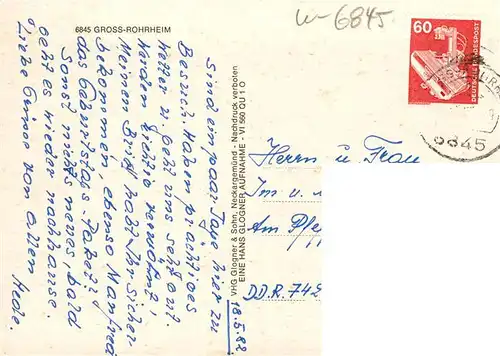 6845 GROSS-ROHRHEIM
w-6845
60
DEUTSCHE BUNDESPOST
6845
Sind ein paar Tage hier zu
Besuch. Haben prächtiges
Wetter u. geht uns sehr gut.
Werden richtig verwöhnt,
Meinen Brief habt Ihr sicher
bekommen, ebenso Manfred
das Geburtstags Paket?
Sonst nichts neues, bald
geht es wieder nachhause.
Liebe Grüsse von allen
Hede.
18.5.82
VHG Glogner & Sohn, Neckargemünd - Nachdruck verboten
EINE HANS GLOGNER AUFNAHME - VI 560 QU 1 O
Herrn u Frau
Im v.
Am Pfe
DDR. 742